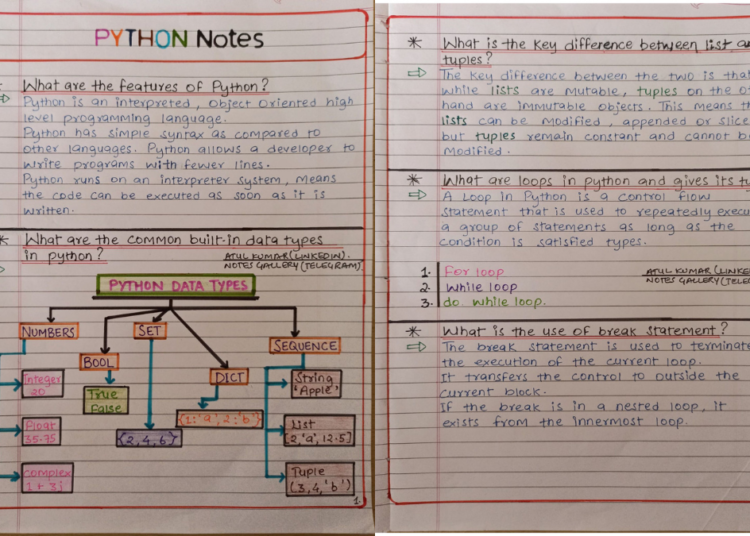 PYTHON Notes
What are the features of Python?
Python is an interpreted, object oriented high
level programming language.
Python has simple syntax as compared to
other languages. Python allows a developer to
write programs with fewer lines.
Python runs on an interpreter system, means
the code can be executed as soon as it is
written.
* What are the common built-in data types
in python?
ATUL KUMAR (LINKEDIN).
NOTES GALLERY (TELEGRAM)
PYTHON DATA TYPES
NUMBERS
SET
SEQUENCE
BOOL
DICT
Integer
20
True
False
String
'Apple'
{1:'a', 2:'b'}
Float
35.75
{2, 4, 6}
List
[2, 'a', 12.5]
Complex
1 + 3j
Tuple
(3, 4, 'b')
1.
* What is the key difference between list
tuples?
⇒ The key difference between the two is
while lists are mutable, tuples on the
hand are immutable objects. This means
lists can be modified, appended or
but tuples remain constant and cannot
modified.
* What are loops in python and gives its
⇒ A loop in Python is a control flow
statement that is used to repeatedly
a group of statements as long as the
condition is satisfied types.
1. For loop
2. while loop
3. do while loop.
ATUL KUMAR (LINKE
NOTES GALLERY (TELE
* What is the use of break statement?
⇒ The break statement is used to terminate
the execution of the current loop.
It transfers the control to outside the
current block.
If the break is in a nested loop, it
exists from the innermost loop.